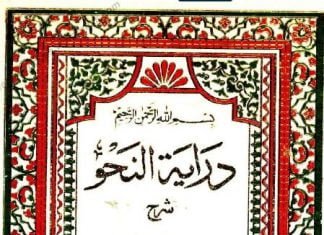 بسم الله الرحمن الرحيم
دراية النحو
شرح